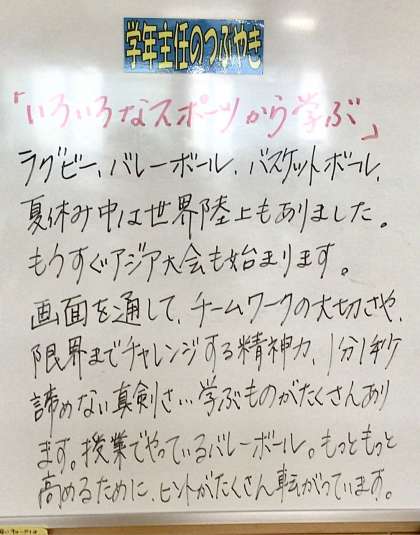 学年主任のつぶやき
「いろいろなスポーツから学ぶ」
ラグビー、バレーボール、バスケットボール、
夏休み中は世界陸上もありました。
もうすぐアジア大会も始まります。
画面を通して、チームワークの大切さや、
限界までチャレンジする精神力、1分1秒
諦めない真剣さ…学ぶものがたくさんあり
ます。授業でやっているバレーボール。もっともっと
高めるために、ヒントがたくさん転がっています。